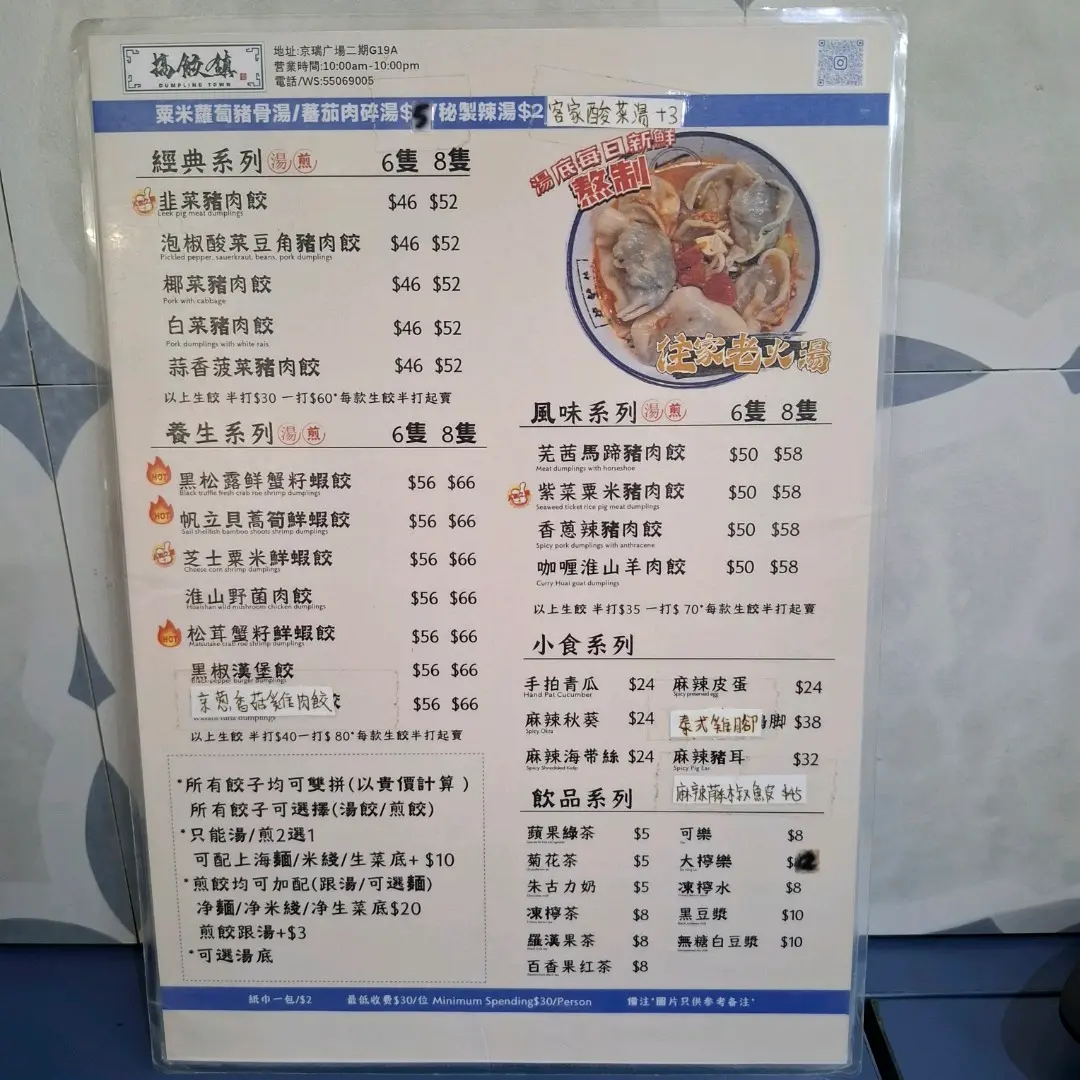 搞餃鎮
DUMPLING TOWN
地址:京瑞广場二期G19A
営業時間:10:00am-10:00pm
電話/WS:55069005
粟米蘿蔔豬骨湯/蕃茄肉碎湯$5/秘製辣湯$2 客家酸菜湯+3
經典系列 湯 煎 6隻 8隻
韭菜豬肉餃 $46 $52
Leek pig meat dumplings
泡椒酸菜豆角豬肉餃 $46 $52
Pickled pepper, sauerkraut, beans, pork dumplings
椰菜豬肉餃 $46 $52
Pork with cabbage
白菜豬肉餃 $46 $52
Pork dumplings with white rais
蒜香菠菜豬肉餃 $46 $52
以上生餃 半打$30 一打$60*每款生餃半打起賣
養生系列 湯 煎 6隻 8隻
HOT 黑松露鮮蟹籽蝦餃 $56 $66
Black truffle fresh crab roe shrimp dumplings
HOT 帆立貝萵筍鮮蝦餃 $56 $66
Sail shellfish bamboo shoots shrimp dumplings
芝士粟米鮮蝦餃 $56 $66
Cheese corn shrimp dumplings
淮山野菌肉餃 $56 $66
Huaishan wild mushroom chicken dumplings
HOT 松茸蟹籽鮮蝦餃 $56 $66
Matsutake crab roe shrimp dumplings
黑椒漢堡餃 $56 $66
Black pepper burger dumplings
京蔥香菇雞肉餃 $56 $66
tuna dumplings
以上生餃 半打$40一打$ 80*每款生餃半打起賣
*所有餃子均可雙拼(以貴價計算 )
所有餃子可選擇(湯餃/煎餃)
*只能湯/煎2選1
可配上海麵/米綫/生菜底+ $10
*煎餃均可加配(跟湯/可選麵)
净麵/净米綫/净生菜底$20
煎餃跟湯+$3
*可選湯底
湯底每日新鮮
熬制
住家老火湯
風味系列 湯 煎 6隻 8隻
芫茜馬蹄豬肉餃 $50 $58
Meat dumplings with horseshoe
紫菜粟米豬肉餃 $50 $58
Seaweed ticket rice pig meat dumplings
香蔥辣豬肉餃 $50 $58
Spicy pork dumplings with anthracene
咖喱淮山羊肉餃 $50 $58
Curry Huai goat dumplings
以上生餃 半打$35 一打$ 70*每款生餃半打起賣
小食系列
手拍青瓜 $24 麻辣皮蛋 $24
Hand Pat Cucumber Spicy preserved egg
麻辣秋葵 $24 泰式雞腳 脚 $38
Spicy Okra
麻辣海带絲 $24 麻辣豬耳 $32
Spicy Shredded Kelp Spicy Pig Ear
飲品系列 麻辣藤椒魚皮 $45
蘋果綠茶 $5 可樂 $8
菊花茶 $5 大檸樂 $2
朱古力奶 $5 凍檸水 $8
凍檸茶 $8 黑豆漿 $10
羅漢果茶 $8 無糖白豆漿 $10
百香果红茶 $8
紙巾一包/$2 最低收費$30/位 Minimum Spending$30/Person 備注*圖片只供参考备注*